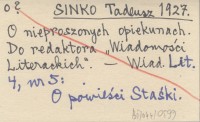 o2
SINKO Tadeusz 1927.
O nieproszonych opiekunach.
Do redaktora „Wiadomości
Literackich". — Wiad. Lit.
4, nr 5:
O powieści Staśki.